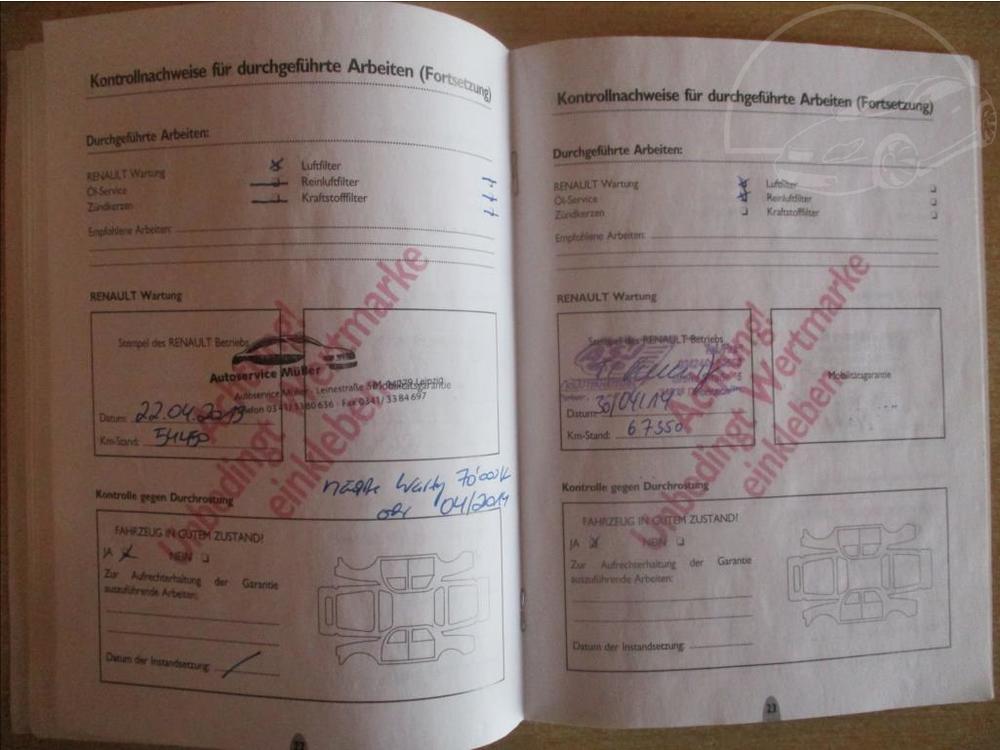 Kontrollnachweise für durchgeführte Arbeiten (Fortsetzung)
Durchgeführte Arbeiten:
RENAULT Wartung
Öl-Service
Zündkerzen
Luftfilter
Reinluftfilter
Kraftstofffilter
Empfohlene Arbeiten:
RENAULT Wartung
Stempel des RENAULT Betriebs
Autoservice Müller
Autoservice Müller · Leinestraße
04279 Leipzig
Mobilitätsgarantie
Telefon 0341/3380636 · Fax 0341/3384697
Datum: 22.04.2013
Km-Stand: 54450
Achtung!
Unbedingt Wertmarke
einkleben
70'000
04/2014
Kontrolle gegen Durchrostung
FAHRZEUG IN GUTEM ZUSTAND!
JA NEIN
Zur Aufrechterhaltung der Garantie
auszuführende Arbeiten:
Datum der Instandsetzung:
Kontrollnachweise für durchgeführte Arbeiten (Fortsetzung)
Durchgeführte Arbeiten:
RENAULT Wartung
Öl-Service
Zündkerzen
Luftfilter
Reinluftfilter
Kraftstofffilter
Empfohlene Arbeiten:
RENAULT Wartung
Stempel des RENAULT Betriebs
Mobilitätsgarantie
Datum: 30/04/14
Km-Stand: 67350
Achtung!
Unbedingt Wertmarke
einkleben
Kontrolle gegen Durchrostung
FAHRZEUG IN GUTEM ZUSTAND!
JA NEIN
Zur Aufrechterhaltung der Garantie
auszuführende Arbeiten:
Datum der Instandsetzung:
23